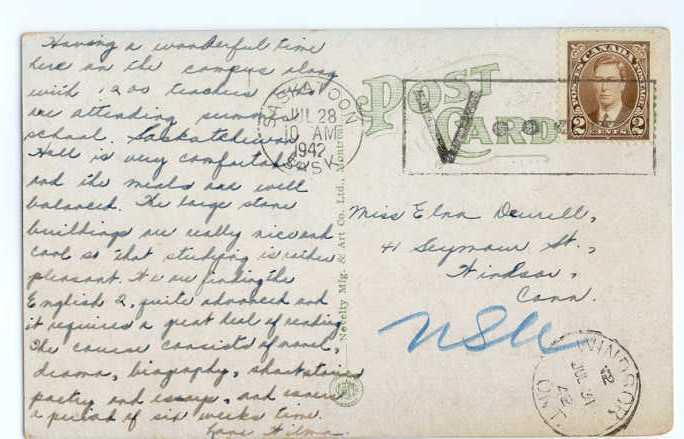 Having a wonderful time
here on the campus along
with 1200 teachers who
are attending summer
school. Saskatchewan
Hall is very comfortable
and the meals are well
balanced. The large stone
buildings are really nice and
cool so that studying is rather
pleasant. We are finding the
English 2, quite advanced and
it requires a great deal of reading.
The course consists of novel,
drama, biography, short stories
poetry and essays, and covers
a period of six weeks time.
Love Wilma.
SASKATOON
JUL 28
10 AM
1942
SASK
POST
CARD
V
CANADA
POSTES POSTAGE
2 CENTS 2
Novelty Mfg. & Art Co., Ltd., Montreal
Miss Elna
41 Seymour St.,
Windsor,
Conn.
WINDSOR
JUL 31
42
ONT